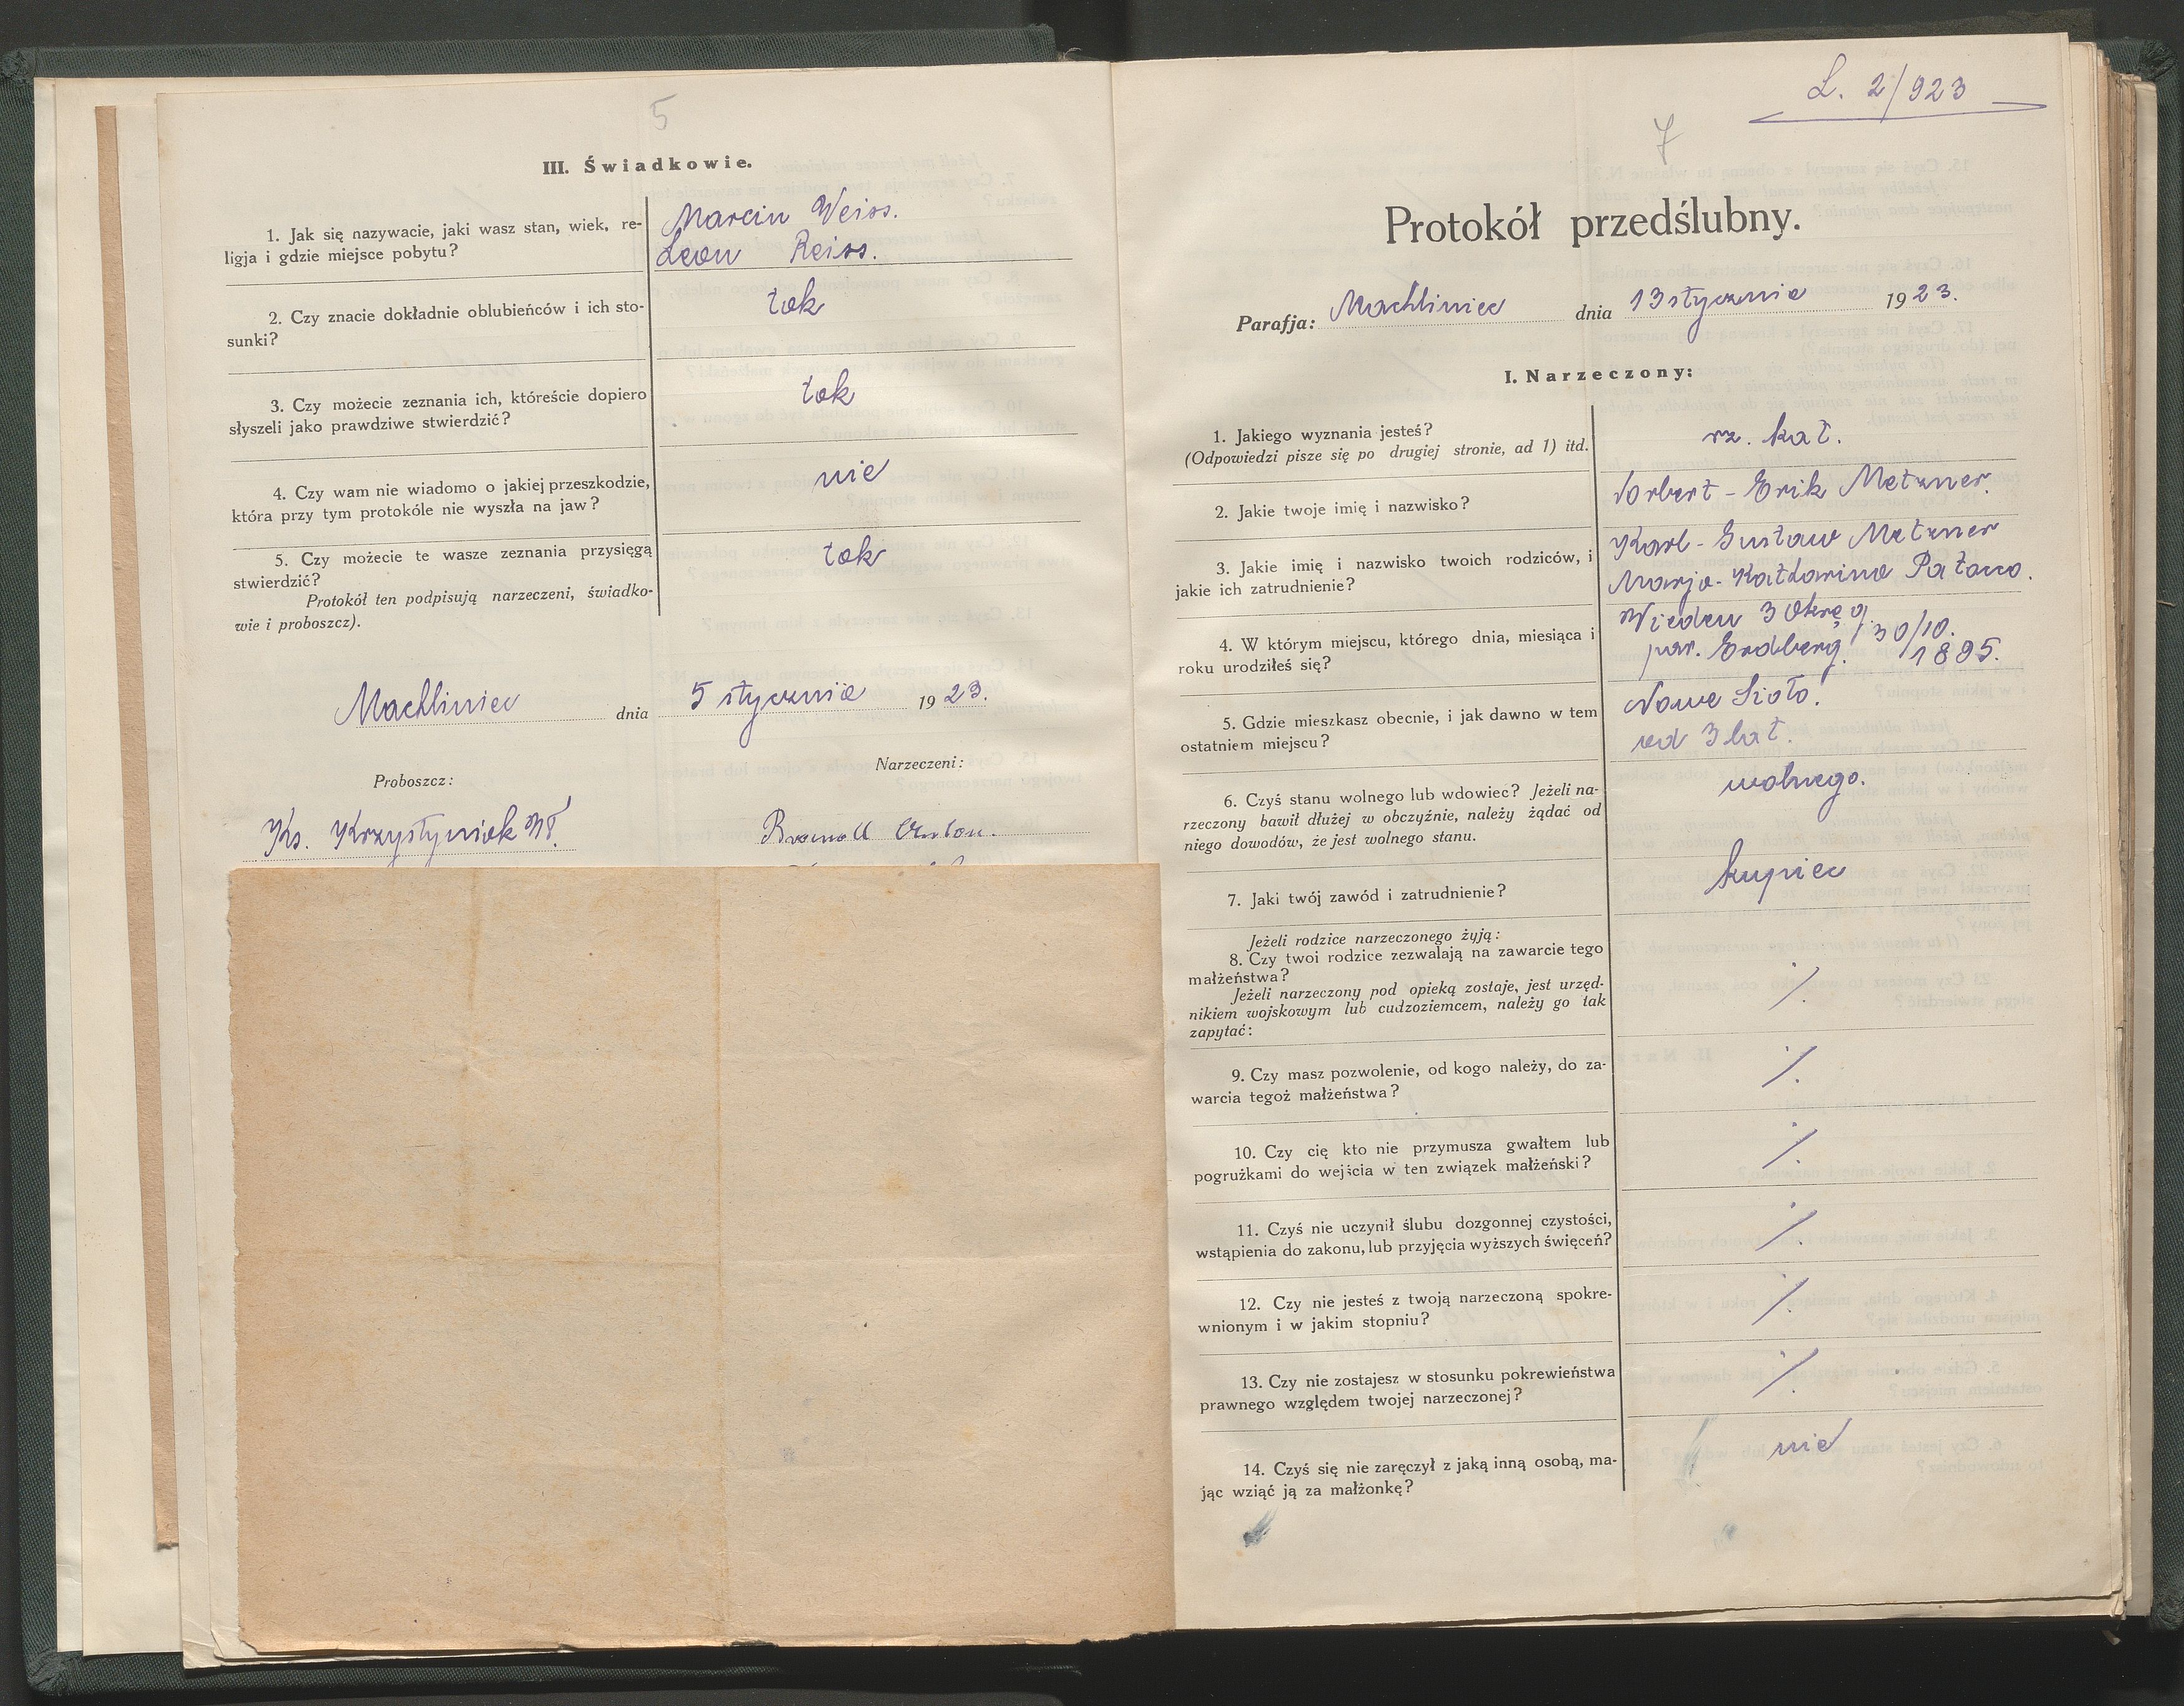 5
III. Świadkowie.
1. Jak się nazywacie, jaki wasz stan, wiek, re-
ligja i gdzie miejsce pobytu?
Marcin Weiss.
Leon Reiss.
2. Czy znacie dokładnie oblubieńców i ich sto-
sunki?
tak
3. Czy możecie zeznania ich, któreście dopiero
słyszeli jako prawdziwe stwierdzić?
tak
4. Czy wam nie wiadomo o jakiej przeszkodzie,
która przy tym protokóle nie wyszła na jaw?
nie
5. Czy możecie te wasze zeznania przysięgą
stwierdzić?
tak
Protokół ten podpisują narzeczeni, świadko-
wie i proboszcz).
Machliniec dnia 5 stycznia 1923.
Proboszcz:
Narzeczeni:
Ks. Krzystyniak Wł.
Anton.
L. 2/923
7
Protokół przedślubny.
Parafja: Machliniec dnia 13 stycznia 1923.
I. Narzeczony:
1. Jakiego wyznania jesteś?
(Odpowiedzi pisze się po drugiej stronie, ad 1) itd.
rz. kat.
2. Jakie twoje imię i nazwisko?
Norbert - Erik Metzner.
3. Jakie imię i nazwisko twoich rodziców, i
jakie ich zatrudnienie?
Karl - Gustaw Metzner
Marja - Katharina
4. W którym miejscu, którego dnia, miesiąca i
roku urodziłeś się?
Wieden 3 Okręg
par. Erdberg. 30/10.
1895.
5. Gdzie mieszkasz obecnie, i jak dawno w tem
ostatniem miejscu?
Nowe Sioło.
od 3 lat.
6. Czyś stanu wolnego lub wdowiec? Jeżeli na-
rzeczony bawił dłużej w obczyźnie, należy żądać od
niego dowodów, że jest wolnego stanu.
wolnego.
7. Jaki twój zawód i zatrudnienie?
kupiec
Jeżeli rodzice narzeczonego żyją:
8. Czy twoi rodzice zezwalają na zawarcie tego
małżeństwa?
Jeżeli narzeczony pod opieką zostaje, jest urzęd-
nikiem wojskowym lub cudzoziemcem, należy go tak
zapytać:
·/.
9. Czy masz pozwolenie, od kogo należy, do za-
warcia tegoż małżeństwa?
·/.
10. Czy cię kto nie przymusza gwałtem lub
pogrużkami do wejścia w ten związek małżeński?
·/.
11. Czyś nie uczynił ślubu dozgonnej czystości,
wstąpienia do zakonu, lub przyjęcia wyższych święceń?
·/.
12. Czy nie jesteś z twoją narzeczoną spokre-
wnionym i w jakim stopniu?
·/.
13. Czy nie zostajesz w stosunku pokrewieństwa
prawnego względem twojej narzeczonej?
·/.
14. Czyś się nie zaręczył z jaką inną osobą, ma-
jąc wziąć ją za małżonkę?
nie